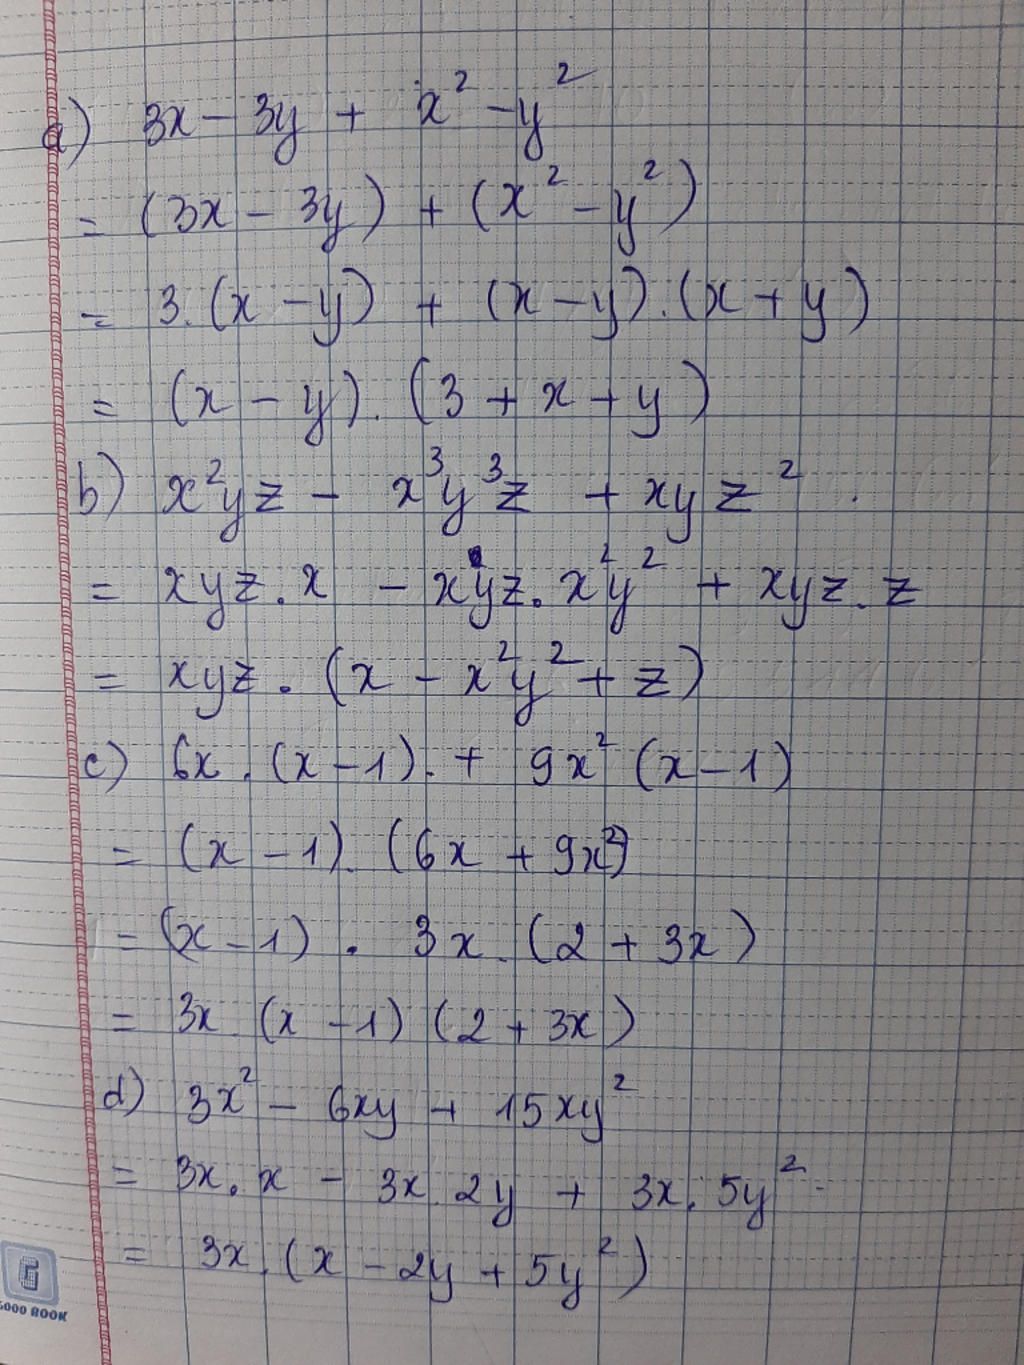 a) 3x - 3y + x² - y²
= (3x - 3y) + (x² - y²)
= 3.(x - y) + (x - y).(x + y)
= (x - y).(3 + x + y)
b) x²yz - x³y³z + xyz².
= xyz.x - xyz.x²y² + xyz.z
= xyz.(x - x²y² + z)
c) 6x.(x - 1).+ 9x²(x - 1)
= (x - 1).(6x + 9x²)
= (x - 1).3x.(2 + 3x)
= 3x.(x - 1)(2 + 3x)
d) 3x² - 6xy + 15xy²
= 3x.x - 3x.2y + 3x.5y².
= 3x.(x - 2y + 5y²)
G
GOOD BOOK